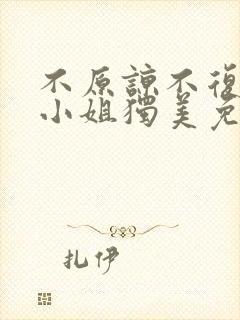 不原諒不復
小姐獨美免
扎伊